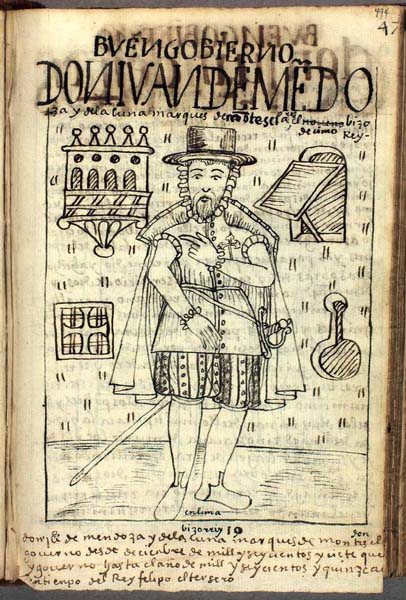 474
47
BVEN GOBIERNO
DON IVAN DE MĒDO
za y de la luna marques de mõtesclaros, el noveno bizo
decimo Rey-
en lima
bizorrey 10
don juº de mendoza y de la luna marques de montescl don
governo desde deciembre de mill y seycientos y ciete que
y governo hasta el ano de mill y seycientos y quinze a
en tienpo del Rey felipo el tersero